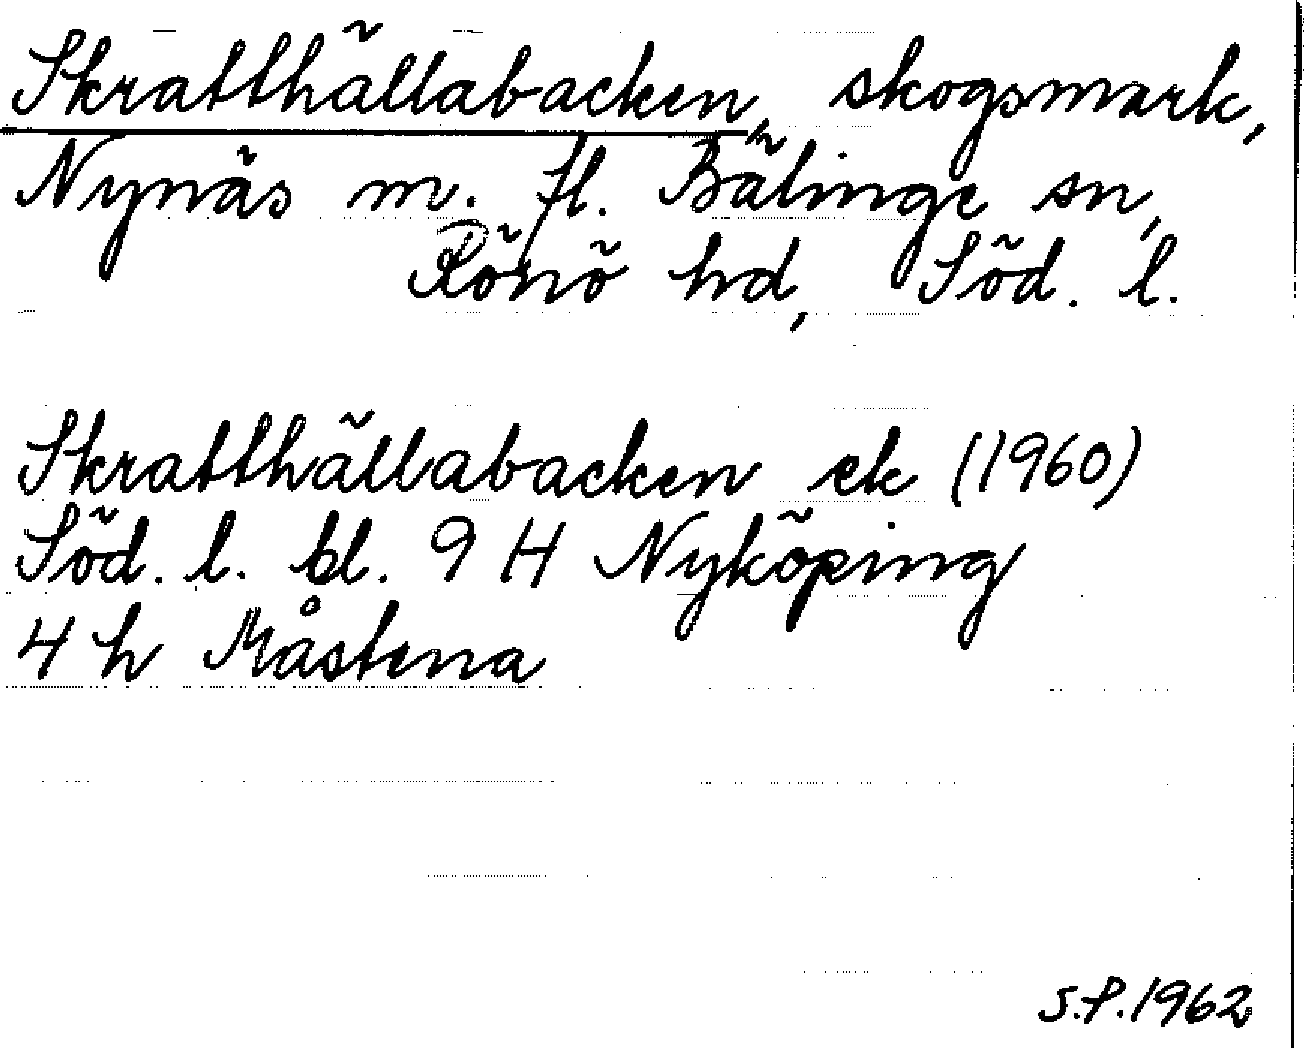 Skratthällabacken, skogsmark,
Nynäs m. fl. Bälinge sn,
Rönö hd, Söd. l.
Skratthällabacken ek (1960)
Söd. l. bl. 9 H Nyköping
4 h Måstena
S.P. 1962